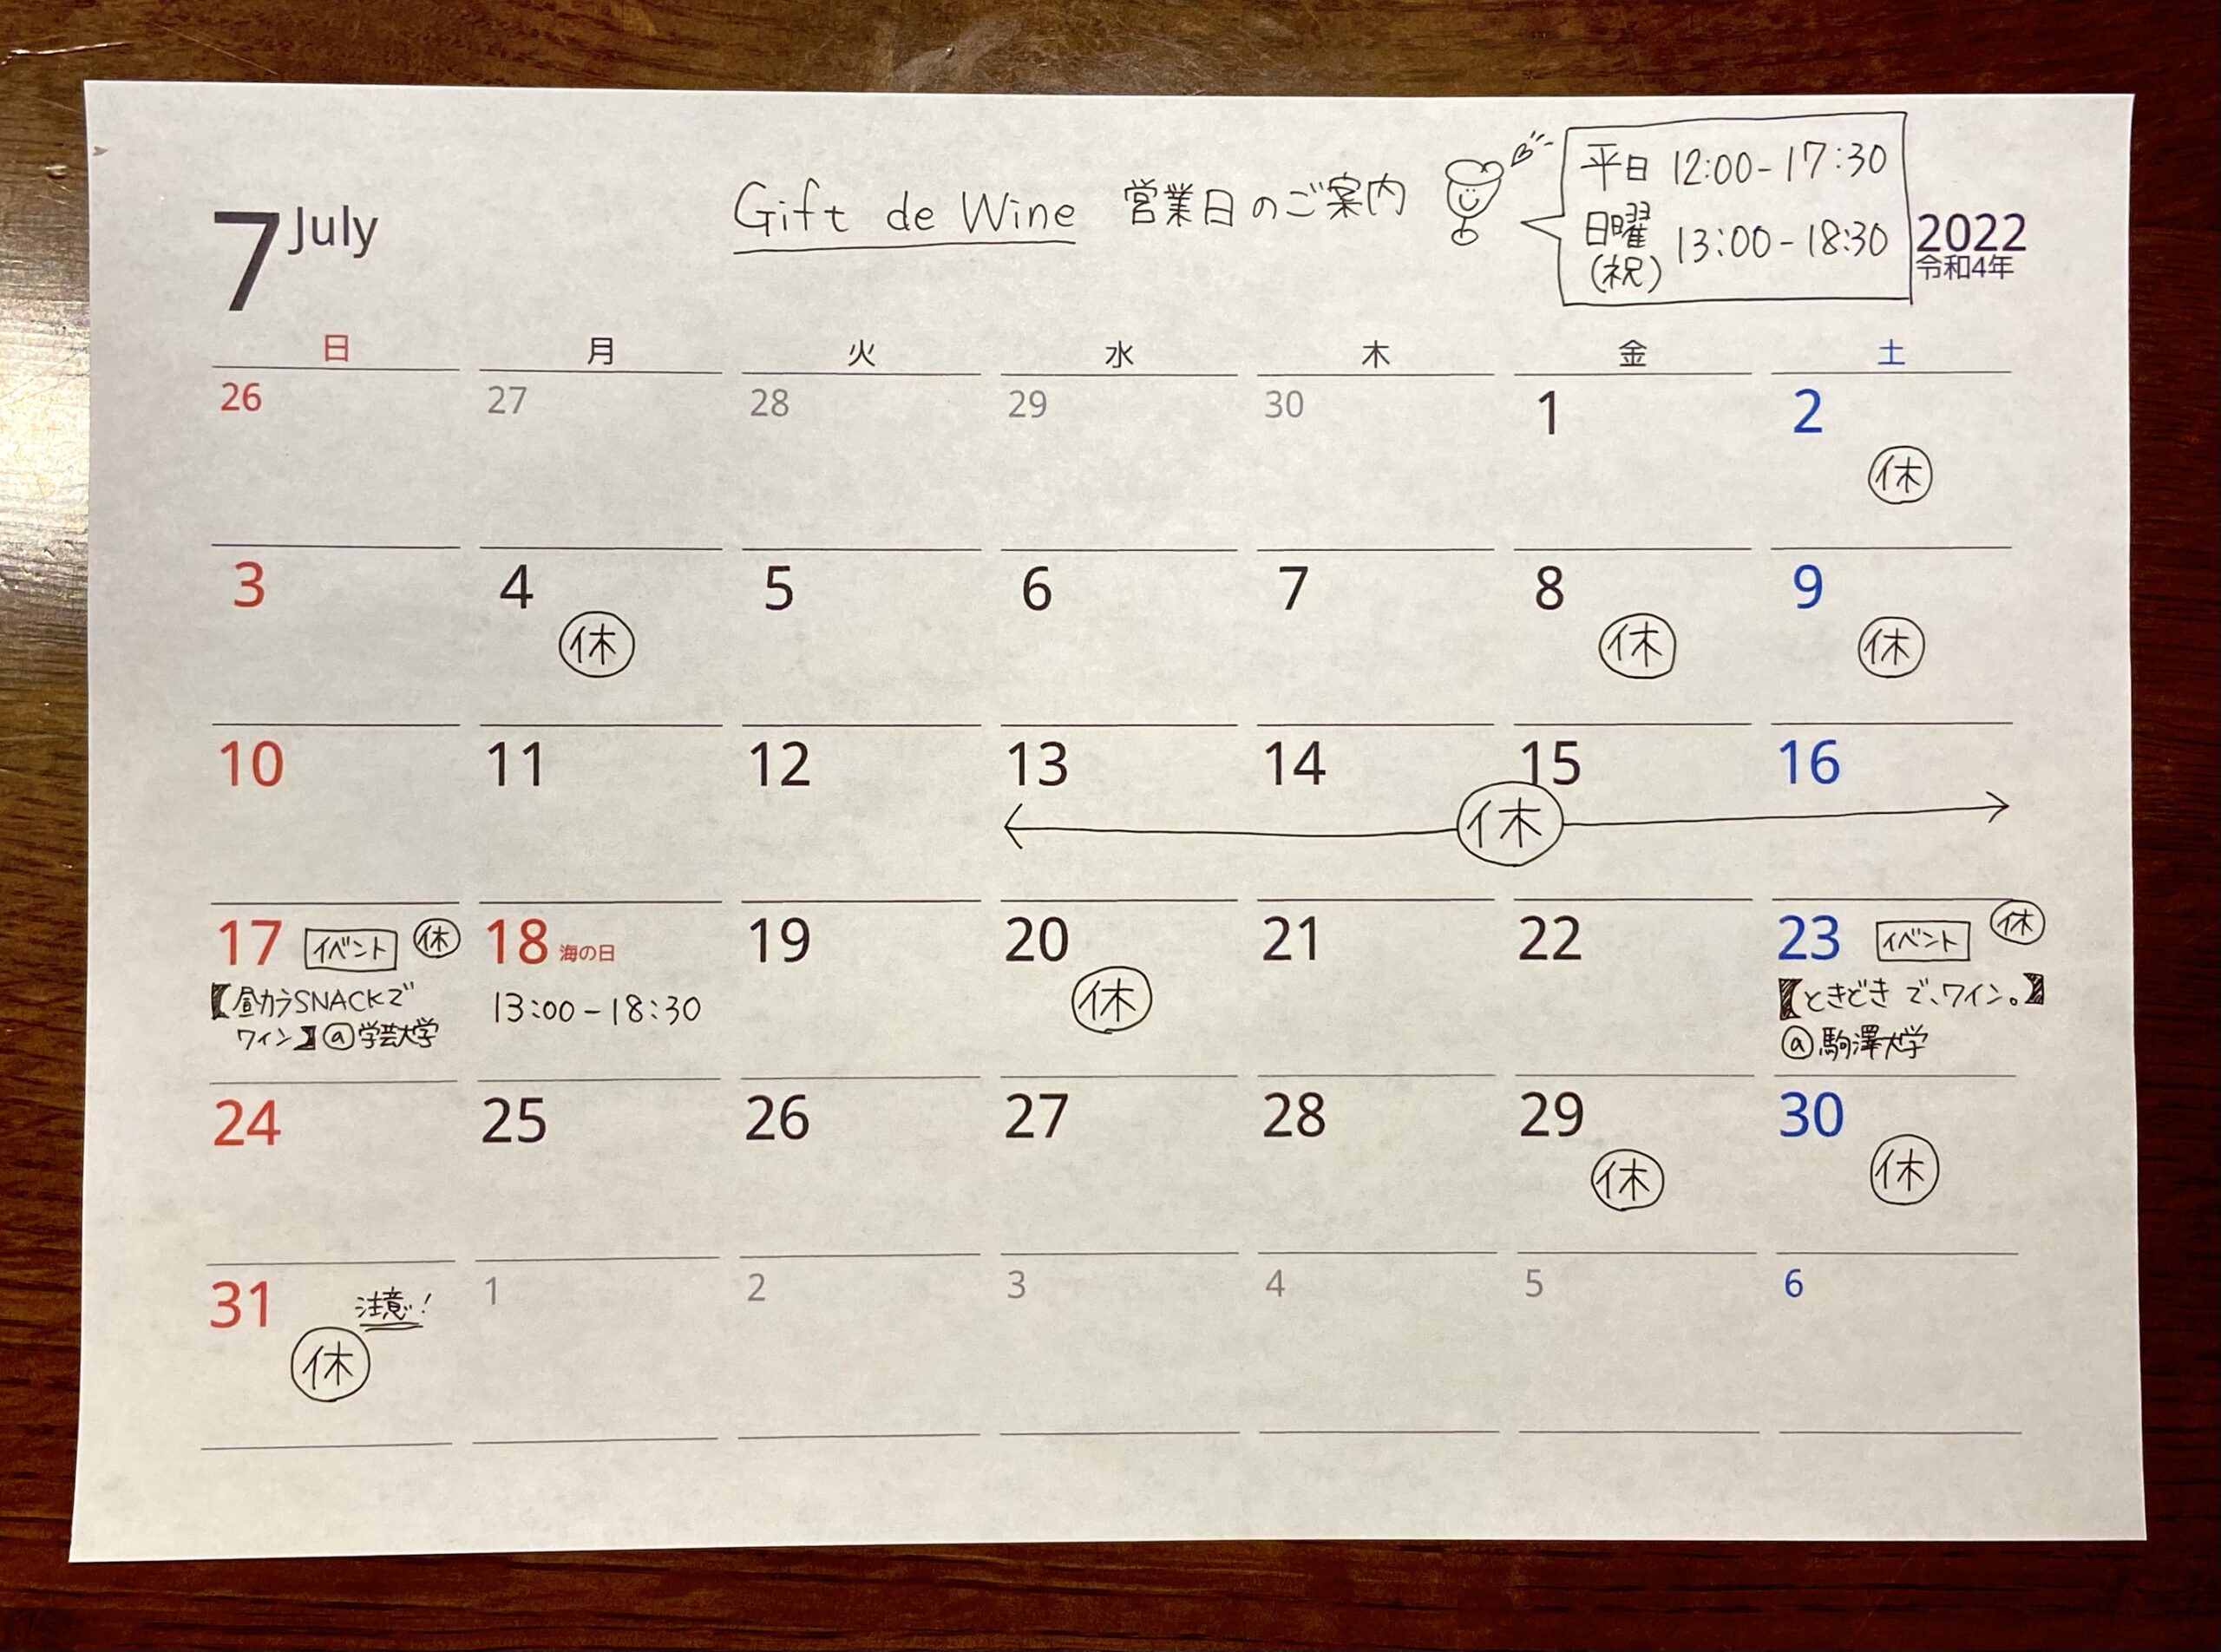 7 July
Gift de Wine 営業日のご案内
平日 12:00-17:30
日曜 13:00-18:30
(祝)
2022
令和4年
日 月 火 水 木 金 土
26 27 28 29 30 1 2
休
3 4 5 6 7 8 9
休 休 休
10 11 12 13 14 15 16
休
17 イベント 休 18 海の日 19 20 21 22 23 イベント 休
【昼カラSNACKで
ワイン】@学芸大学
13:00-18:30
休
【ときどき で、ワイン。】
@駒澤大学
24 25 26 27 28 29 30
休 休
31 注意! 1 2 3 4 5 6
休